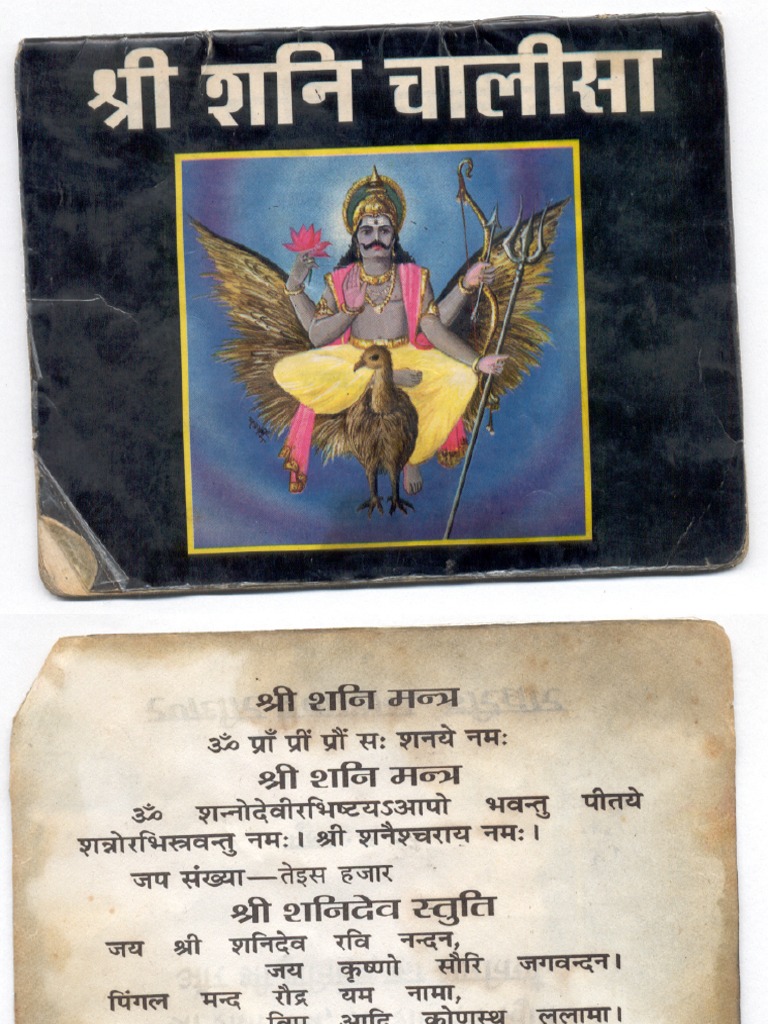 श्री शनि चालीसा
श्री शनि मन्त्र
ॐ प्राँ प्रीं प्रौं सः शनये नमः
श्री शनि मन्त्र
ॐ शन्नोदेवीरभिष्टयऽआपो भवन्तु पीतये
शन्नोरभिस्त्रवन्तु नमः। श्री शनैश्चराय नमः।
जप संख्या—तेइस हजार
श्री शनिदेव स्तुति
जय श्री शनिदेव रवि नन्दन,
जय कृष्णो सौरि जगवन्दन।
पिंगल मन्द रौद्र यम नामा,
आदि कोणस्थ ललामा।